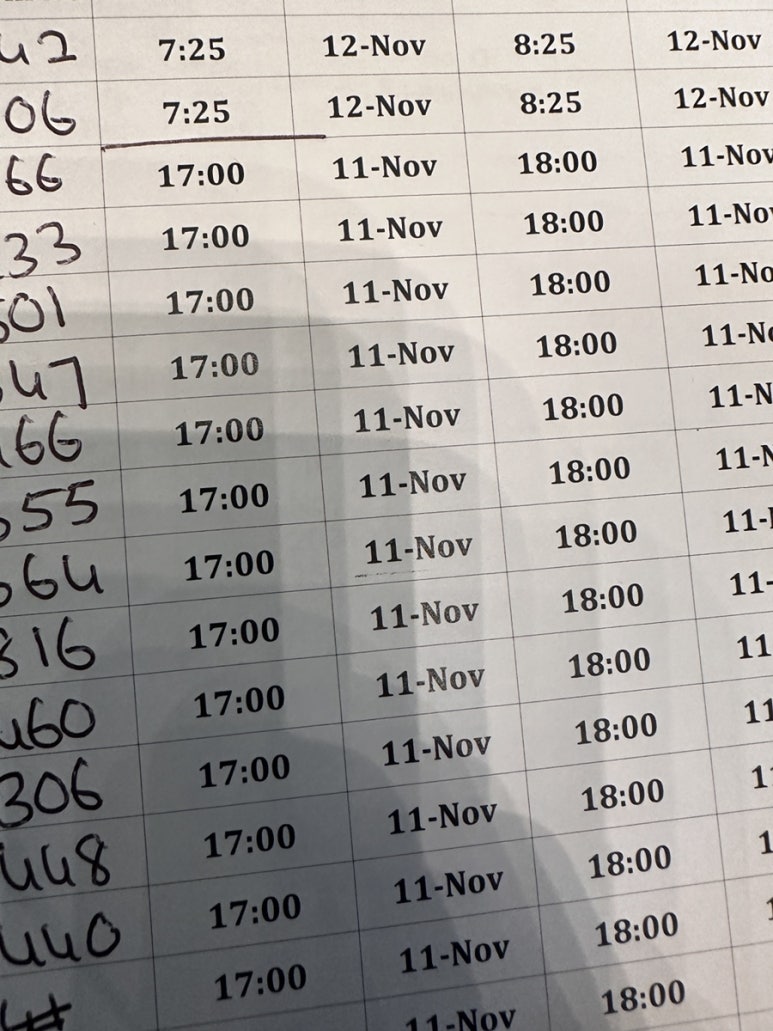 42 7:25 12-Nov 8:25 12-Nov
06 7:25 12-Nov 8:25 12-Nov
66 17:00 11-Nov 18:00 11-Nov
33 17:00 11-Nov 18:00 11-Nov
501 17:00 11-Nov 18:00 11-No
47 17:00 11-Nov 18:00 11-No
66 17:00 11-Nov 18:00 11-N
55 17:00 11-Nov 18:00 11-N
64 17:00 11-Nov 18:00 11-
816 17:00 11-Nov 18:00 11-
460 17:00 11-Nov 18:00 11
306 17:00 11-Nov 18:00 11
448 17:00 11-Nov 18:00 1
440 17:00 11-Nov 18:00 1
17:00 11-Nov 18:00 1
11-Nov 18:00